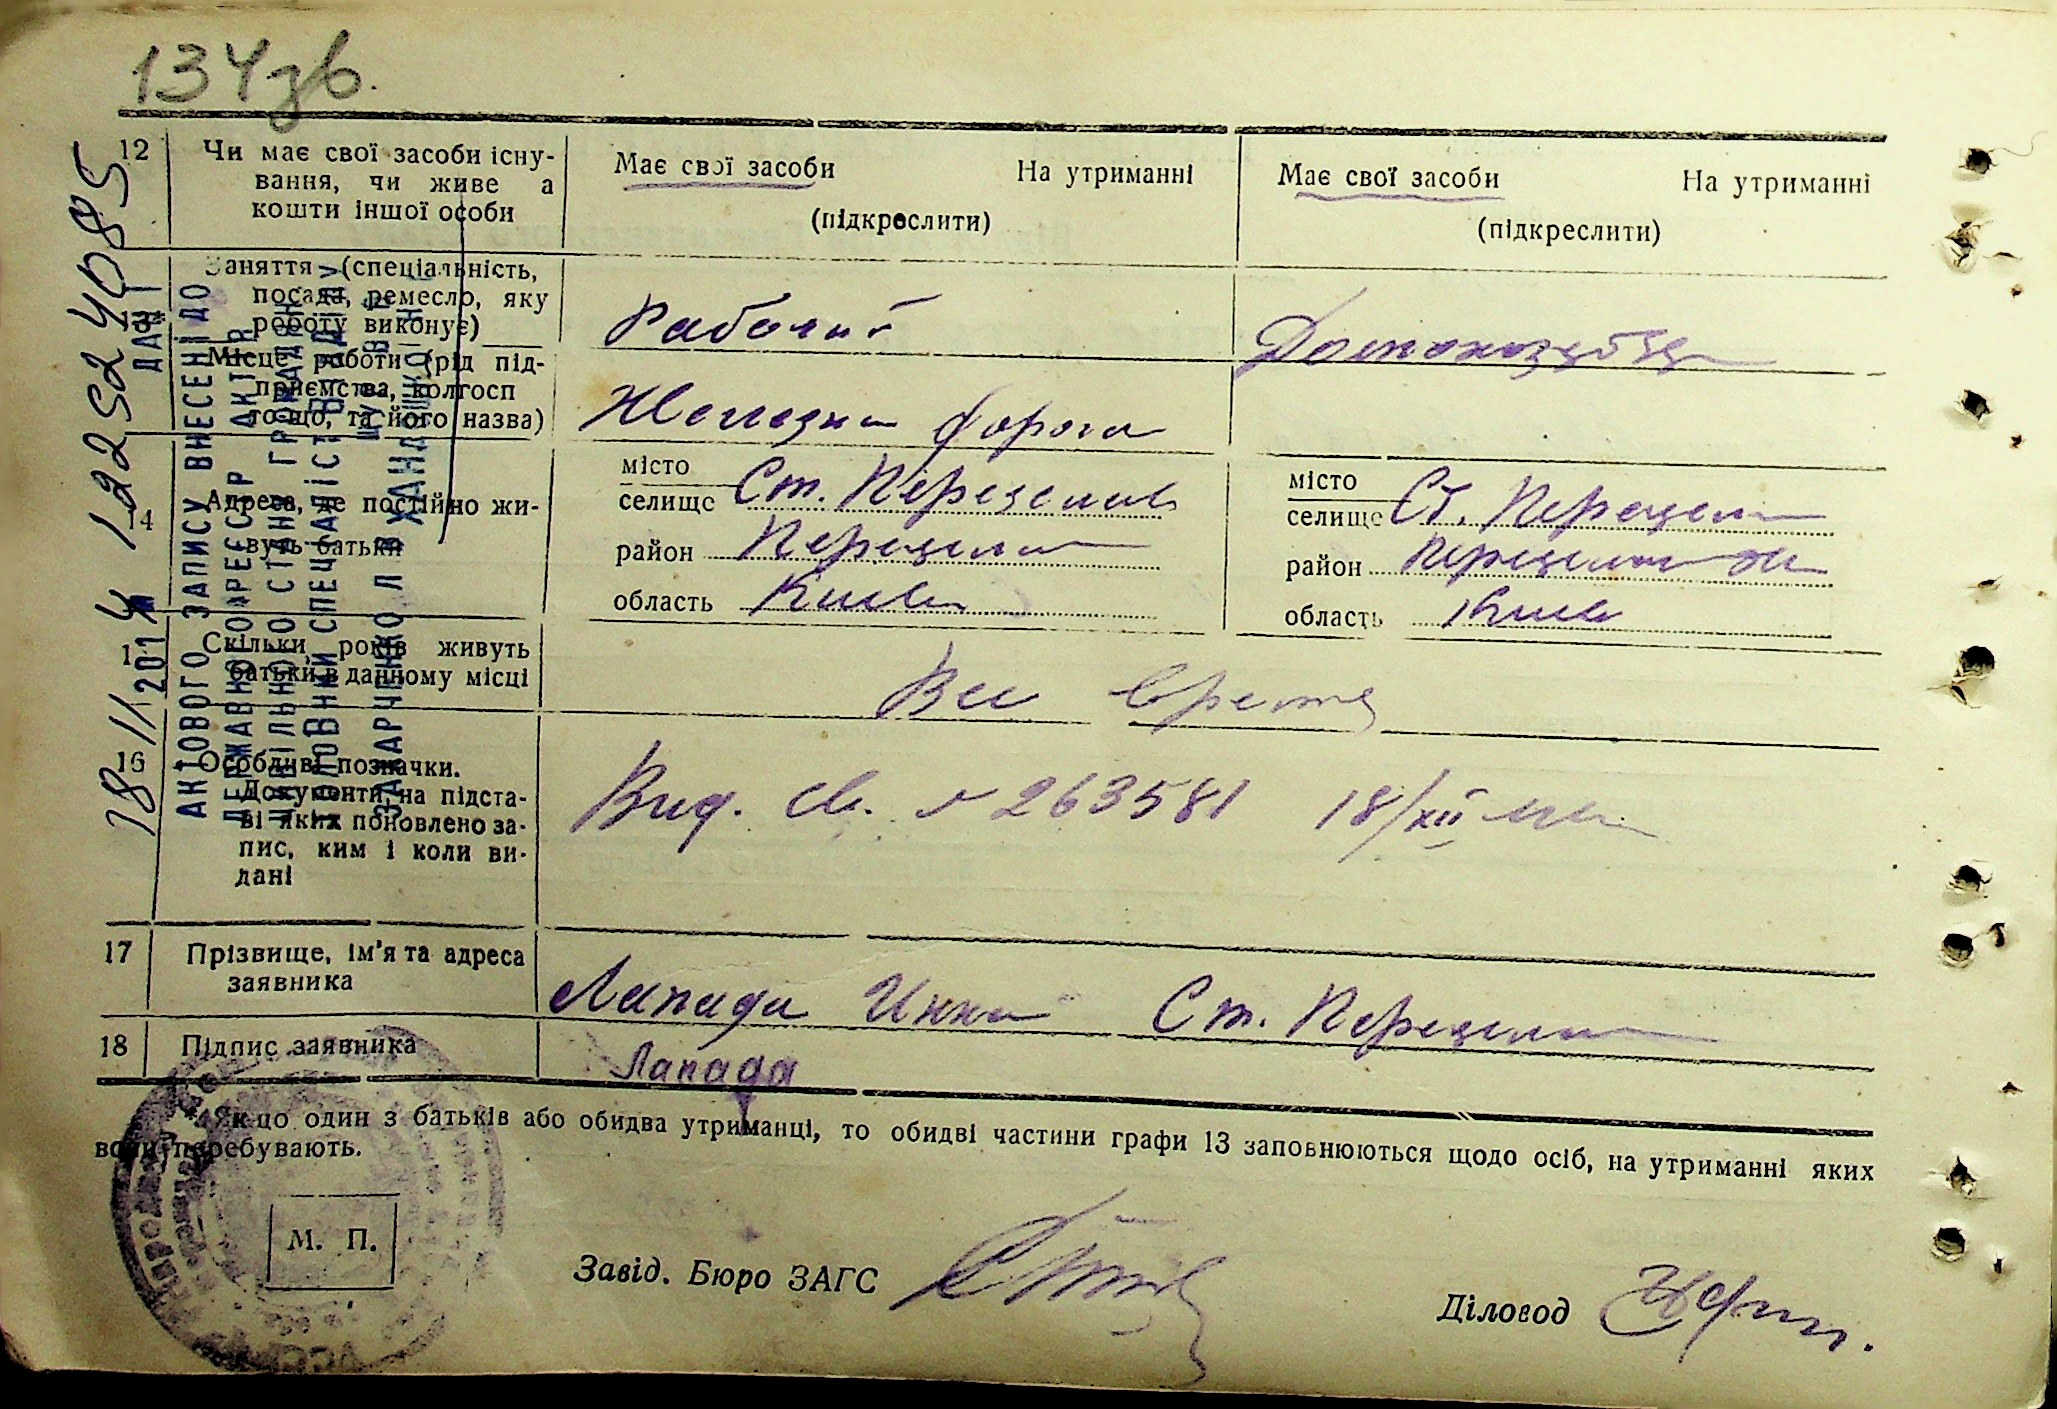 134зв.
12 Чи має свої засоби існу-
вання, чи живе а
кошти іншої особи
Має свої засоби На утриманні
(підкреслити)
Має свої засоби На утриманні
(підкреслити)
Заняття (спеціальність,
посада, ремесло, яку
роботу виконує)
Рабочий
Домохозяйка
Місце роботи (рід під-
приємства, колгосп
тощо, та його назва)
Железная дорога
14 Адреса, де постійно жи-
вуть батьки
місто
селище Ст. Переяслав
район
область Киев
місто
селище Ст.
район
область Киев
Скільки років живуть
батьки в данному місці
Все время
16 Особливі позначки.
Документи, на підста-
ві яких поновлено за-
пис, ким і коли ви-
дані
Выд. св. № 263581 18/XII
17 Прізвище, ім'я та адреса
заявника
Лапада Инна Ст.
18 Підпис заявника
Лапада
* Якщо один з батьків або обидва утриманці, то обидві частини графи 13 заповнюються щодо осіб, на утриманні яких
вони перебувають.
М. П.
Завід. Бюро ЗАГС
Діловод
ДАНІ
АКТОВОГО ЗАПИСУ ВНЕСЕНІ ДО
ДЕРЖАВНОГО РЕЄСТР АКТІВ
ЦИВІЛЬНОГО СТАНУ ГРОМАДЯН
ГОЛОВНИЙ СПЕЦІАЛІСТ ВІДДІЛУ
ЗАХАРЧЕНКО Л. В.
18 11 2014 12252 40885